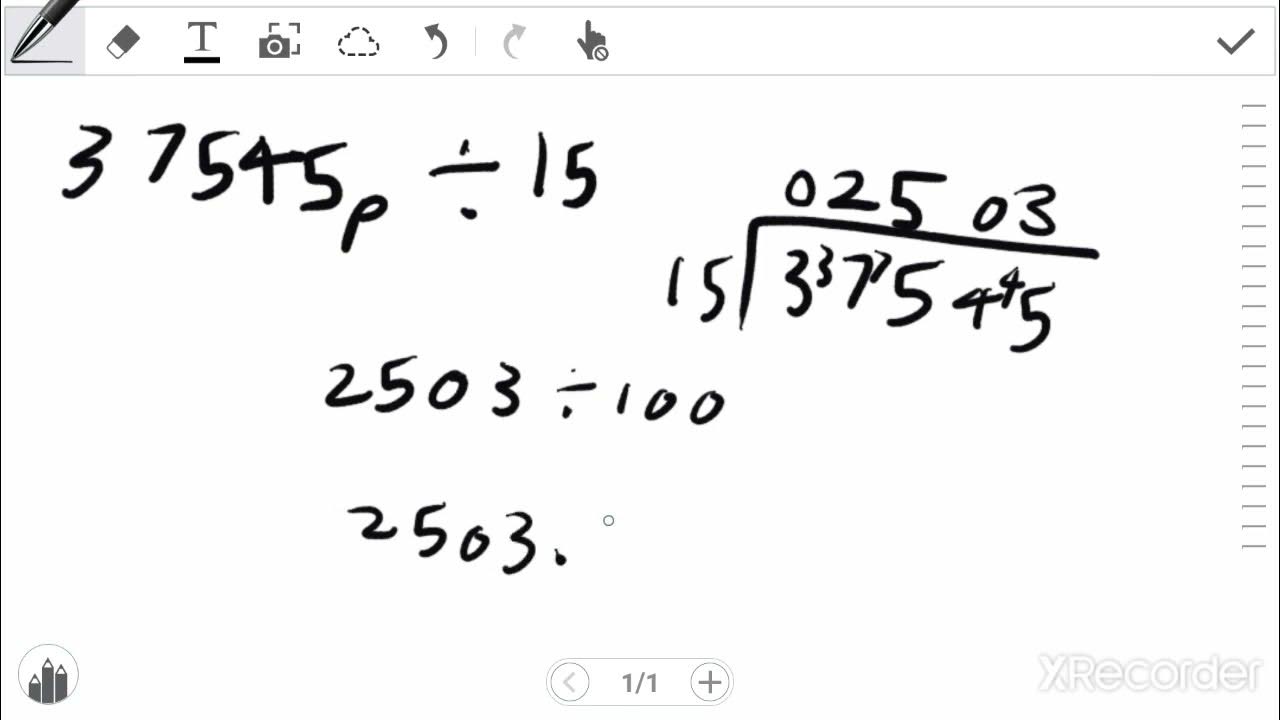 T
37545p ÷ 15
02503
15 3³7⁷54⁴5
2503 ÷ 100
2503.
1/1
XRecorder